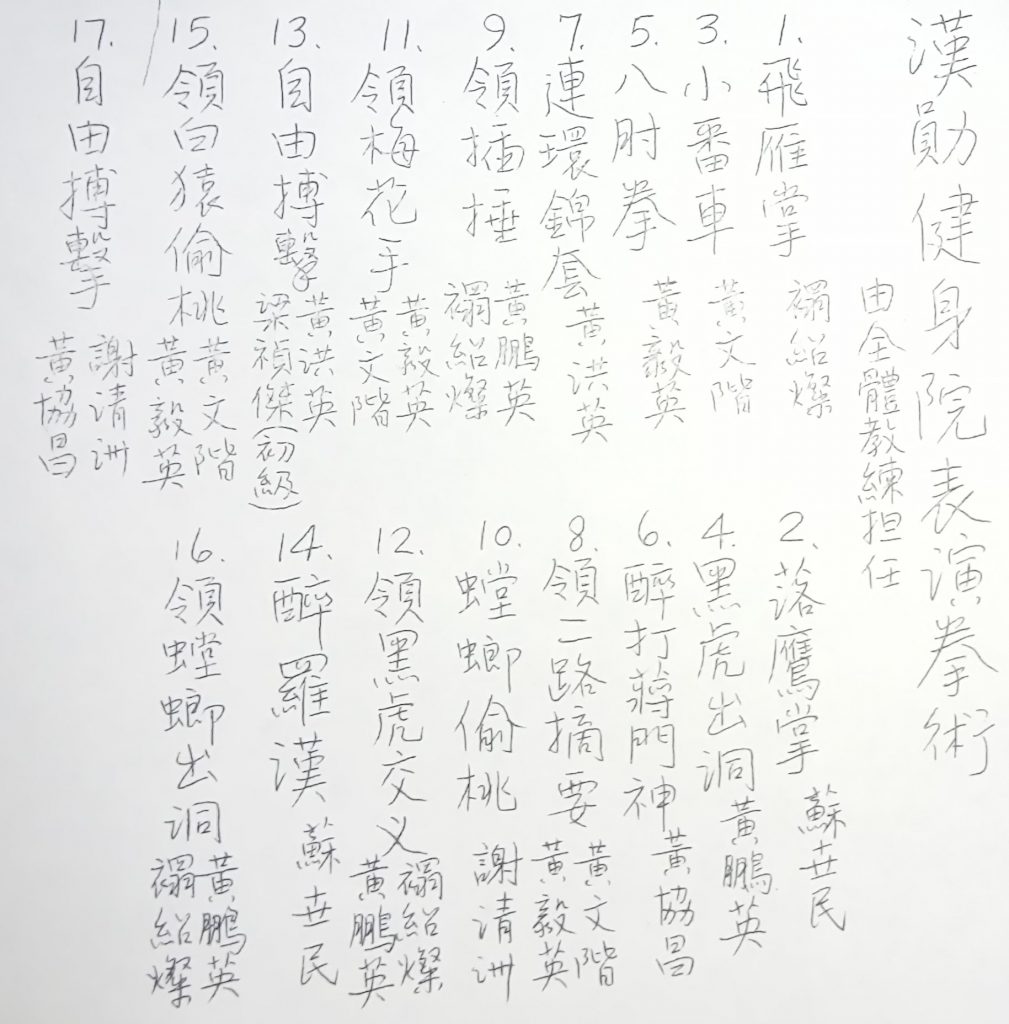 漢勛健身院表演拳術
由全體教練担任
1. 飛雁掌 禤紹燦
2. 落鷹掌 蘇世民
3. 小番車 黃文階
4. 黑虎出洞 黃鵬英
5. 八肘拳 黃毅英
6. 醉打蔣門神 黃協昌
7. 連環錦套 黃洪英
8. 領二路摘要 黃文階 黃毅英
9. 領插捶 黃鵬英 禤紹燦
10. 螳螂偷桃 謝清洲
11. 領梅花手 黃毅英 黃文階
12. 領黑虎交义 禤紹燦 黃鵬英
13. 自由搏擊 黃洪英 梁禎傑(初級)
14. 醉羅漢 蘇世民
15. 領白猿偷桃 黃文階 黃毅英
16. 領螳螂出洞 黃鵬英 禤紹燦
17. 自由搏擊 謝清洲 黃協昌